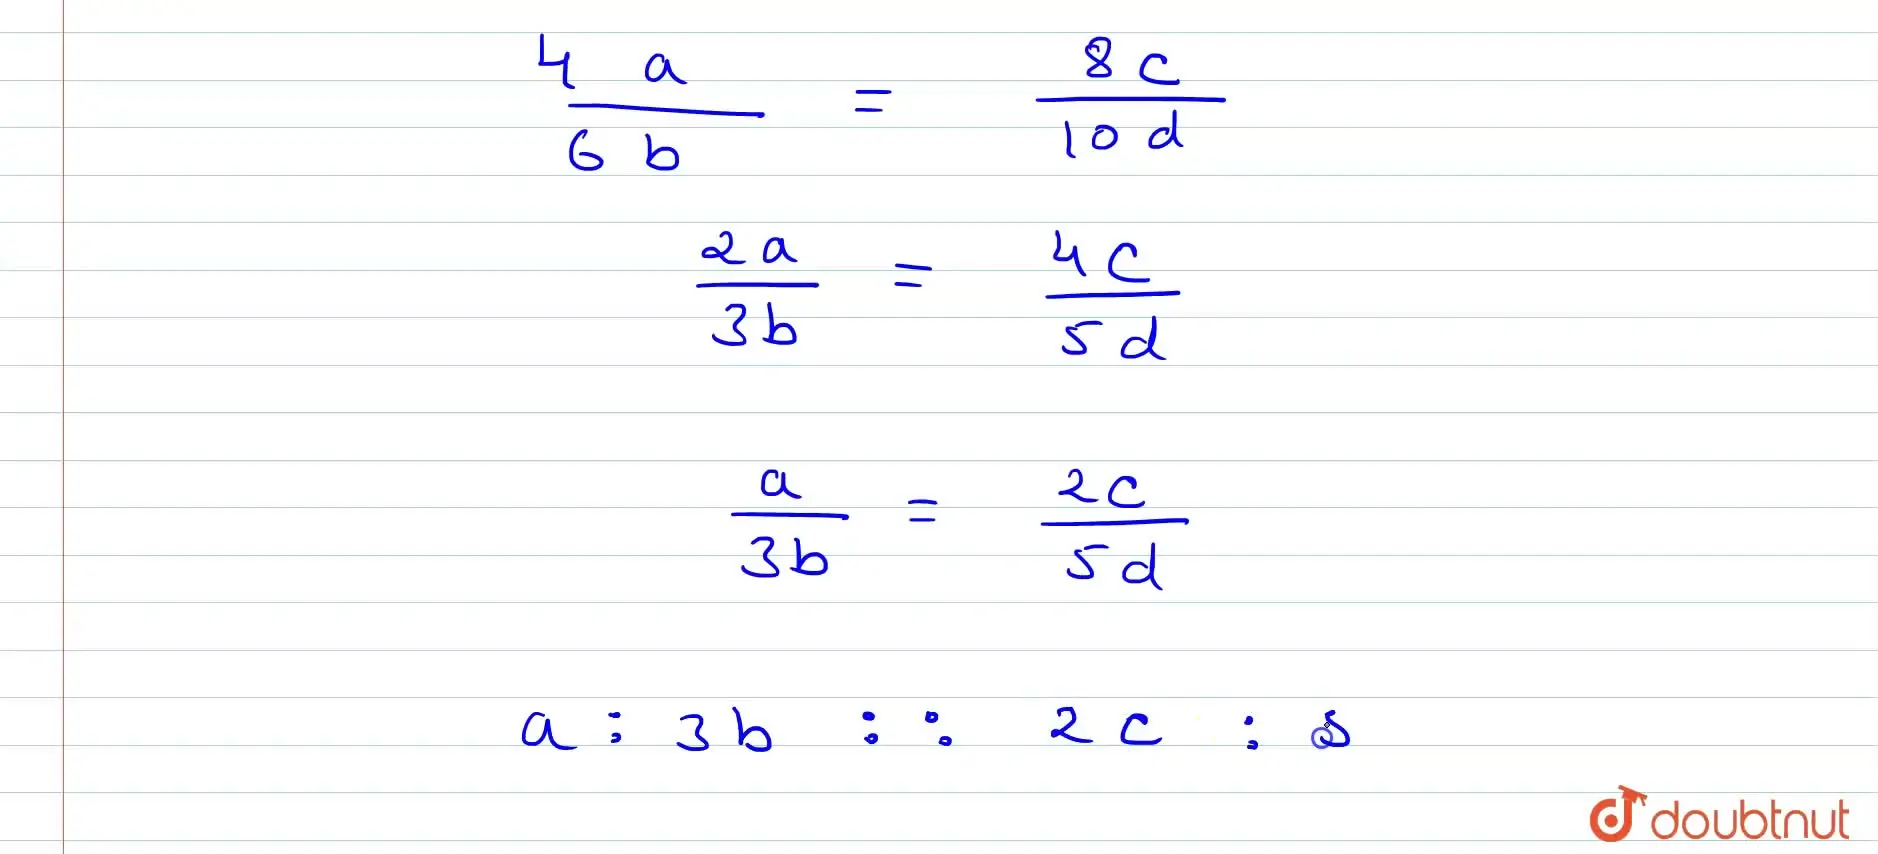 4 a / 6 b = 8 c / 10 d
2a / 3b = 4c / 5d
a / 3b = 2c / 5d
a : 3b :: 2c : 5
doubtnut